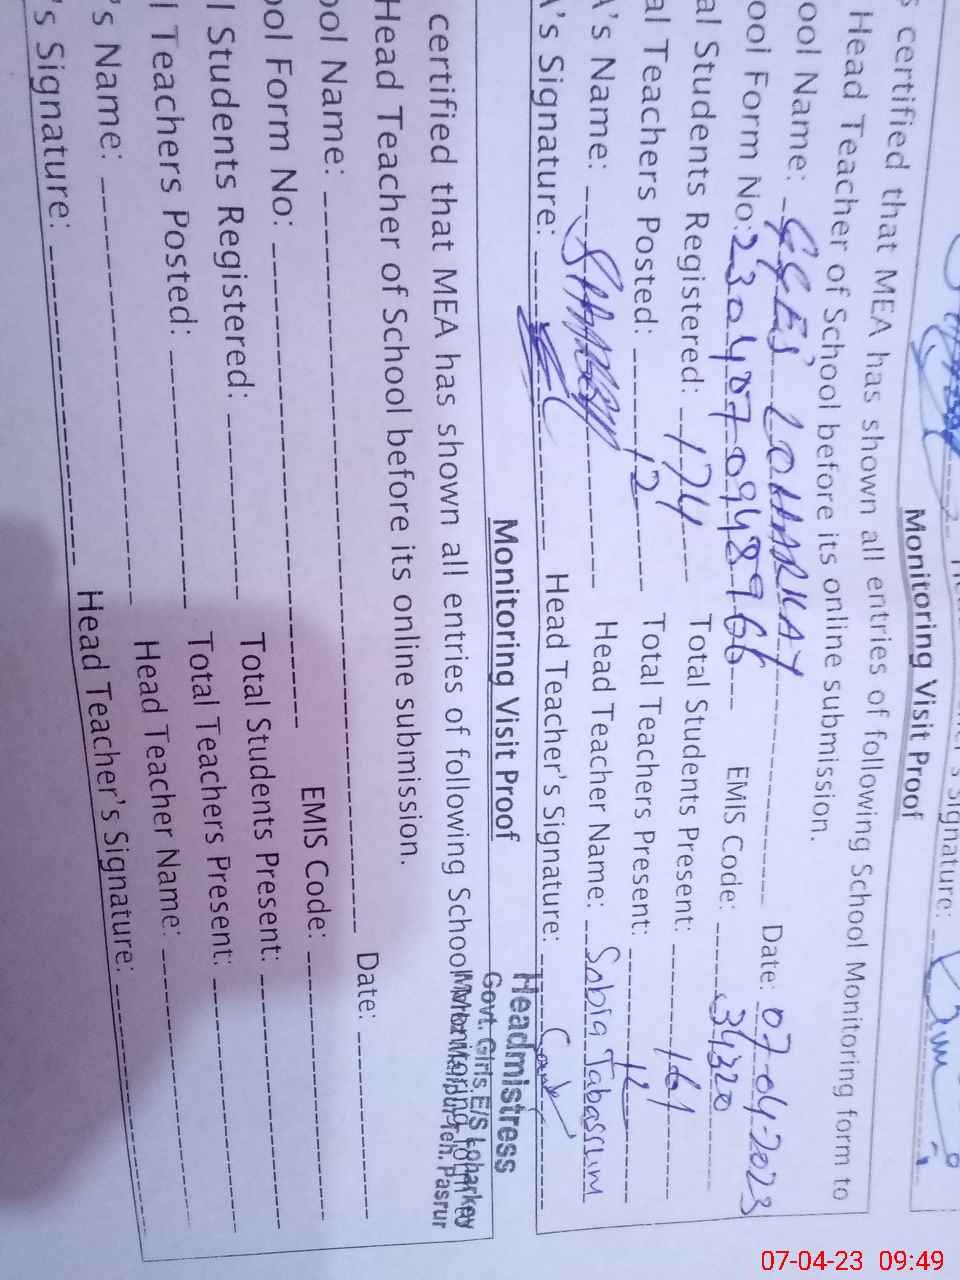 Signature:
Monitoring Visit Proof
s certified that MEA has shown all entries of following School Monitoring form to
Head Teacher of School before its online submission.
ool Name: GGES LOHARKAY Date: 07-04-2023
ool Form No: 2304070948966 EMIS Code: 34320
al Students Registered: 174 Total Students Present: 161
al Teachers Posted: 12 Total Teachers Present:
A's Name: Head Teacher Name: Sobia Tabassum
A's Signature: Head Teacher's Signature:
Headmistress
Govt. Girls E/S Loharkey
Teh. Pasrur
Monitoring Visit Proof
certified that MEA has shown all entries of following School Monitoring form to
Head Teacher of School before its online submission.
ool Name: Date:
ool Form No: EMIS Code:
l Students Registered: Total Students Present:
l Teachers Posted: Total Teachers Present:
's Name: Head Teacher Name:
's Signature: Head Teacher's Signature:
07-04-23 09:49